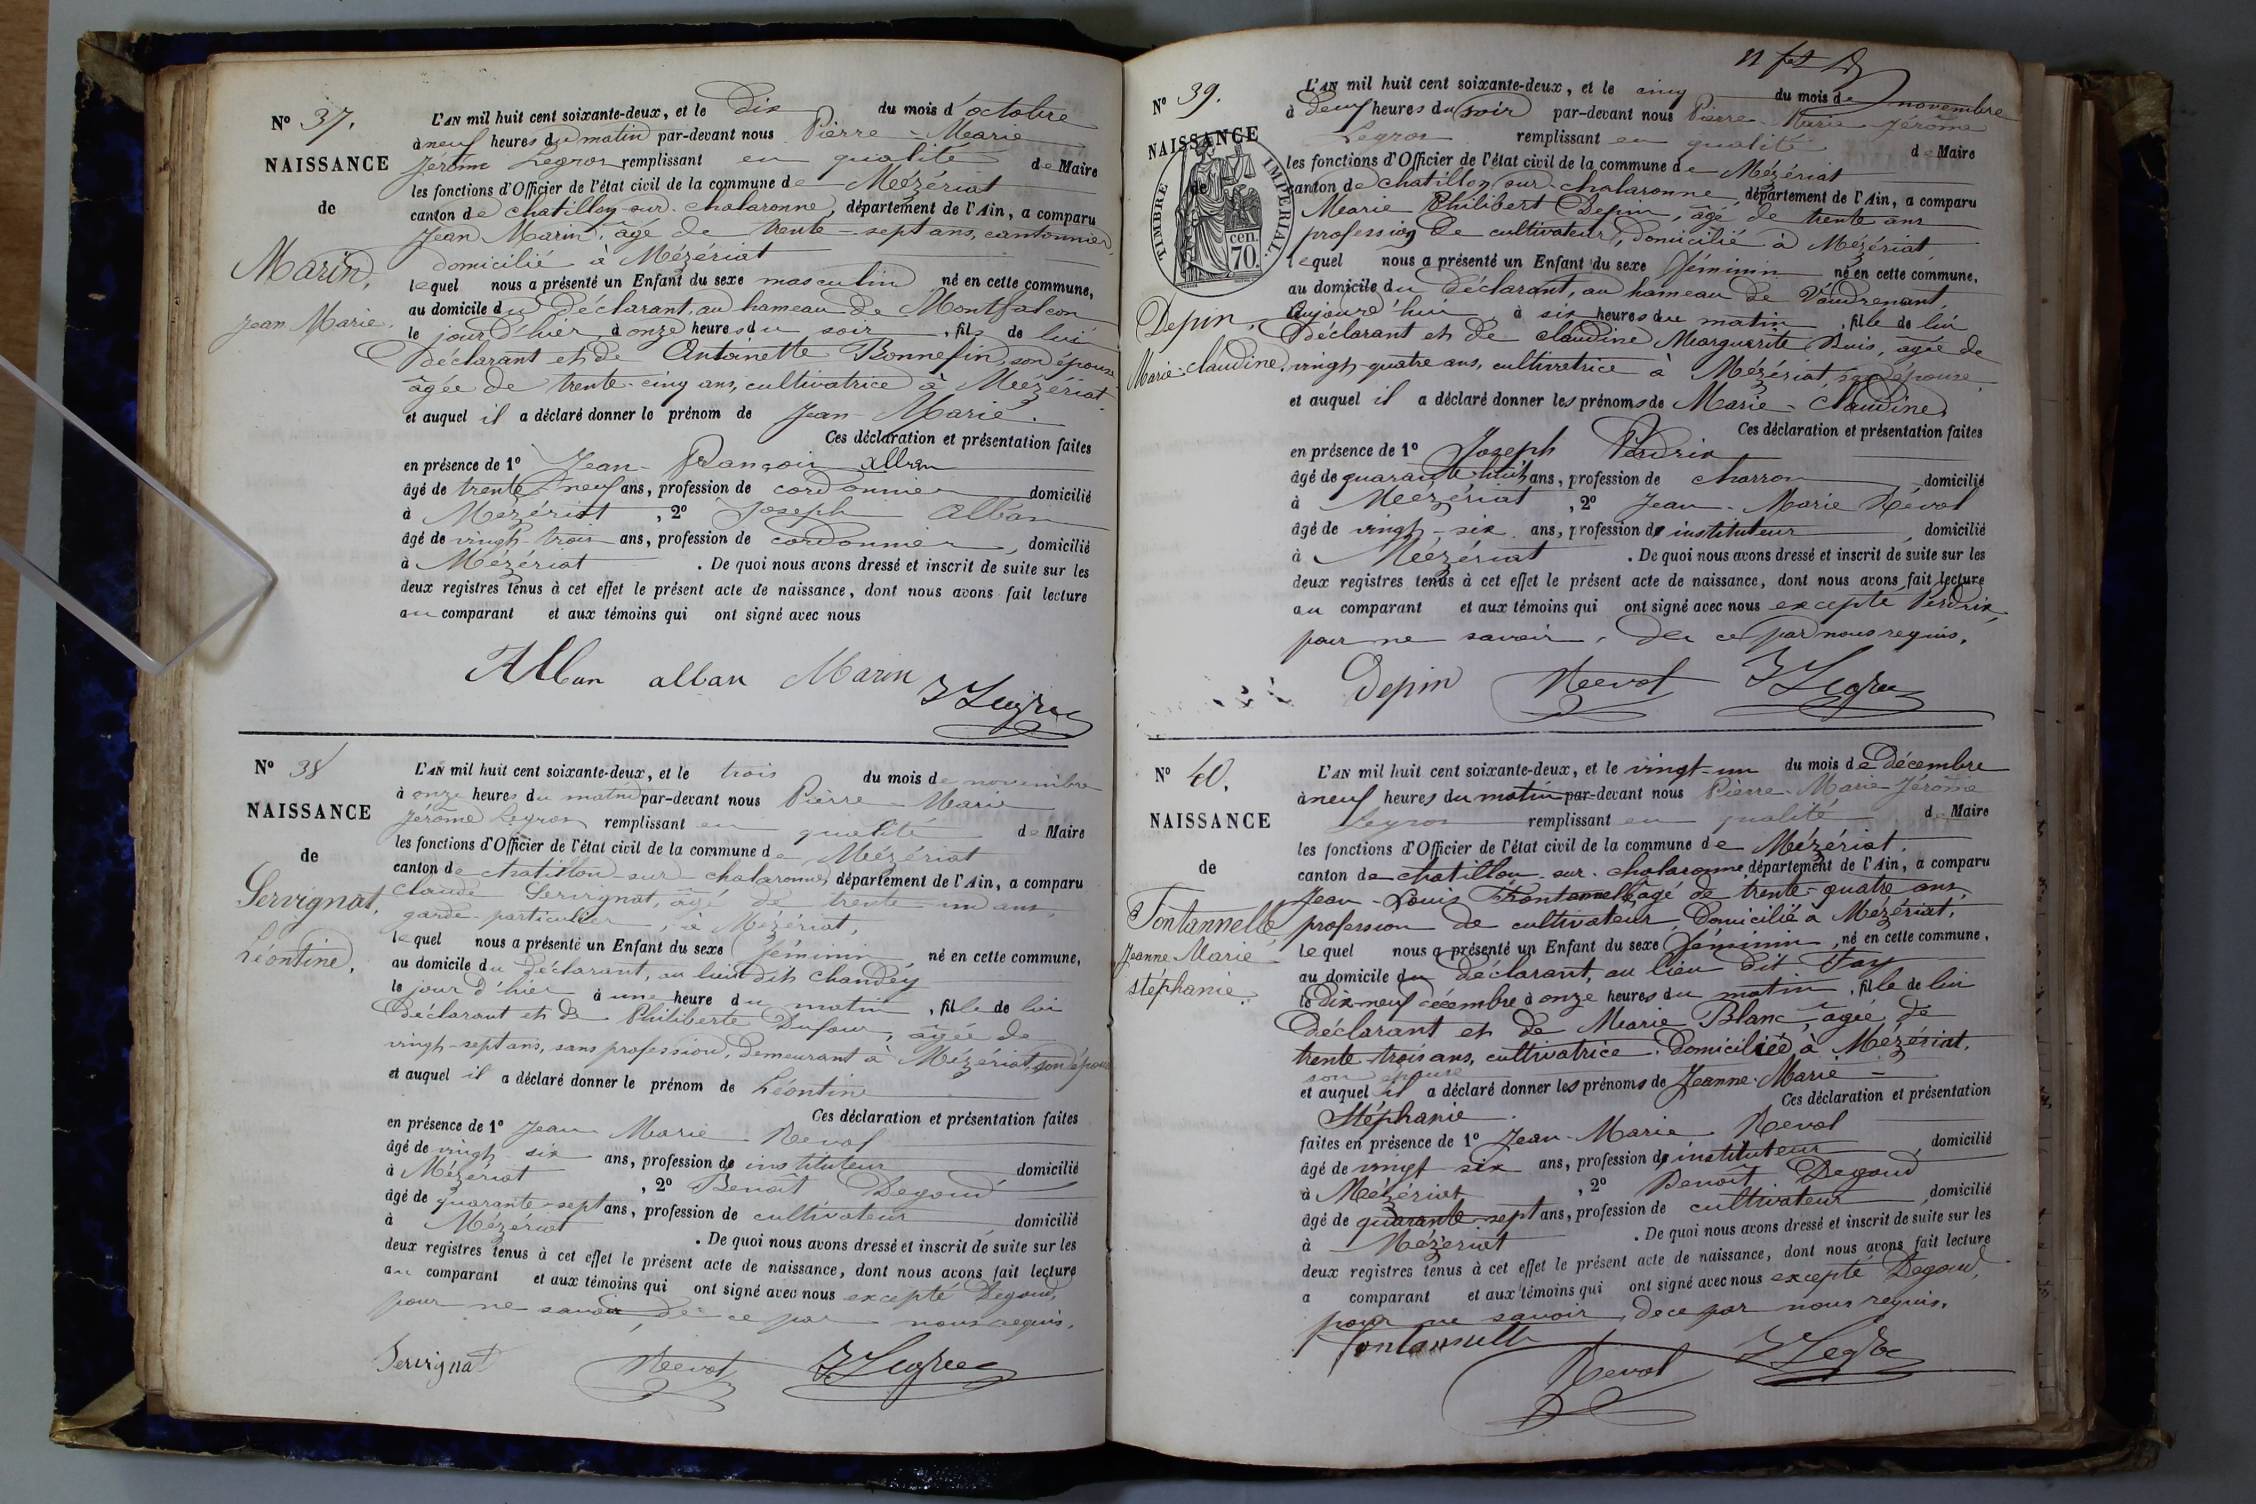 Nº 37.
NAISSANCE
de
Marin,
Jean Marie.
L'AN mil huit cent soixante-deux, et le dix du mois d'octobre
à neuf heures du matin par-devant nous Pierre-Marie
Jérôme Legros remplissant en qualité de Maire
les fonctions d'Officier de l'état civil de la commune de Mézériat
canton de chatillon-sur-chalaronne, département de l'Ain, a comparu
Jean Marin, âgé de trente-sept ans, cantonnier,
domicilié à Mézériat
lequel nous a présenté un Enfant du sexe masculin né en cette commune,
au domicile du déclarant, au hameau de Montfalcon
le jour d'hier à onze heures du soir, fils de lui
déclarant et de Antoinette Bonnefin, son épouse
âgée de trente-cinq ans, cultivatrice à Mézériat.
et auquel il a déclaré donner le prénom de Jean-Marie.
Ces déclaration et présentation faites
en présence de 1º Jean-François alban
âgé de trente-neuf ans, profession de cordonnier domicilié
à Mézériat, 2º Joseph Alban
âgé de vingt-trois ans, profession de cordonnier, domicilié
à Mézériat. De quoi nous avons dressé et inscrit de suite sur les
deux registres tenus à cet effet le présent acte de naissance, dont nous avons fait lecture
au comparant et aux témoins qui ont signé avec nous
Alban alban Marin J Legros
Nº 38
NAISSANCE
de
Servignat,
Léontine.
L'AN mil huit cent soixante-deux, et le trois du mois de novembre
à onze heures du matin par-devant nous Pierre-Marie
Jérôme Legros remplissant en qualité de Maire
les fonctions d'Officier de l'état civil de la commune de Mézériat
canton de chatillon-sur-chalaronne, département de l'Ain, a comparu
Claude Servignat, âgé de trente-un ans,
garde-particulier, à Mézériat,
lequel nous a présenté un Enfant du sexe féminin, né en cette commune,
au domicile du déclarant, au lieu dit Chandey
le jour d'hier à une heure du matin, fille de lui
déclarant et de Philiberte Dufour, âgée de
vingt-sept ans, sans profession, demeurant à Mézériat, son épouse
et auquel il a déclaré donner le prénom de Léontine
Ces déclaration et présentation faites
en présence de 1º Jean Marie Revol
âgé de vingt-six ans, profession de instituteur domicilié
à Mézériat, 2º Benoît Degoud
âgé de quarante-sept ans, profession de cultivateur domicilié
à Mézériat. De quoi nous avons dressé et inscrit de suite sur les
deux registres tenus à cet effet le présent acte de naissance, dont nous avons fait lecture
au comparant et aux témoins qui ont signé avec nous excepté Degoud,
pour ne savoir, de ce par nous requis.
Servignat Revol J Legros
Nº 39.
NAISSANCE
de
TIMBRE IMPÉRIAL.
70 cen.
Depin,
Marie-Claudine.
L'AN mil huit cent soixante-deux, et le cinq du mois de novembre
à deux heures du soir par-devant nous Pierre-Marie-Jérôme
Legros remplissant en qualité de Maire
les fonctions d'Officier de l'état civil de la commune de Mézériat
canton de chatillon-sur-chalaronne, département de l'Ain, a comparu
Marie Philibert Depin, âgé de trente ans
profession de cultivateur, domicilié à Mézériat,
lequel nous a présenté un Enfant du sexe féminin né en cette commune,
au domicile du déclarant, au hameau de Vaudrenant,
aujourd'hui, à six heures du matin, fille de lui
déclarant et de claudine Marguerite Buis, âgée de
vingt-quatre ans, cultivatrice à Mézériat, son épouse,
et auquel il a déclaré donner les prénoms de Marie-Claudine.
Ces déclaration et présentation faites
en présence de 1º Joseph Perdrix
âgé de quarante-huit ans, profession de charron domicilié
à Mézériat, 2º Jean-Marie Révol
âgé de vingt-six ans, profession de instituteur, domicilié
à Mézériat. De quoi nous avons dressé et inscrit de suite sur les
deux registres tenus à cet effet le présent acte de naissance, dont nous avons fait lecture
au comparant et aux témoins qui ont signé avec nous excepté Perdrix,
pour ne savoir, de ce par nous requis.
Depin Revol J Legros
Nº 40.
NAISSANCE
de
Fontannelle
Jeanne Marie
stéphanie.
L'AN mil huit cent soixante-deux, et le vingt-un du mois de Décembre
à neuf heures du matin par-devant nous Pierre-Marie-Jérôme
Legros remplissant en qualité de Maire
les fonctions d'Officier de l'état civil de la commune de Mézériat.
canton de chatillon-sur-chalaronne, département de l'Ain, a comparu
Jean-Louis Fontannelle, âgé de trente-quatre ans
profession de cultivateur, domicilié à Mézériat,
lequel nous a présenté un Enfant du sexe féminin, né en cette commune,
au domicile du déclarant, au lieu dit Fay
le dix neuf décembre à onze heures du matin, fille de lui
déclarant et de Marie Blanc, âgée de
trente-trois ans, cultivatrice, domiciliée à Mézériat,
son épouse
et auquel il a déclaré donner les prénoms de Jeanne-Marie-
Ces déclaration et présentation
Stéphanie.
faites en présence de 1º Jean-Marie Revol
âgé de vingt six ans, profession de instituteur, domicilié
à Mézériat, 2º Benoît Degoud
âgé de quarante-sept ans, profession de cultivateur domicilié
à Mézériat. De quoi nous avons dressé et inscrit de suite sur les
deux registres tenus à cet effet le présent acte de naissance, dont nous avons fait lecture
a comparant et aux témoins qui ont signé avec nous excepté Degoud,
pour ne savoir, de ce par nous requis.
fontannelle Revol J Legros